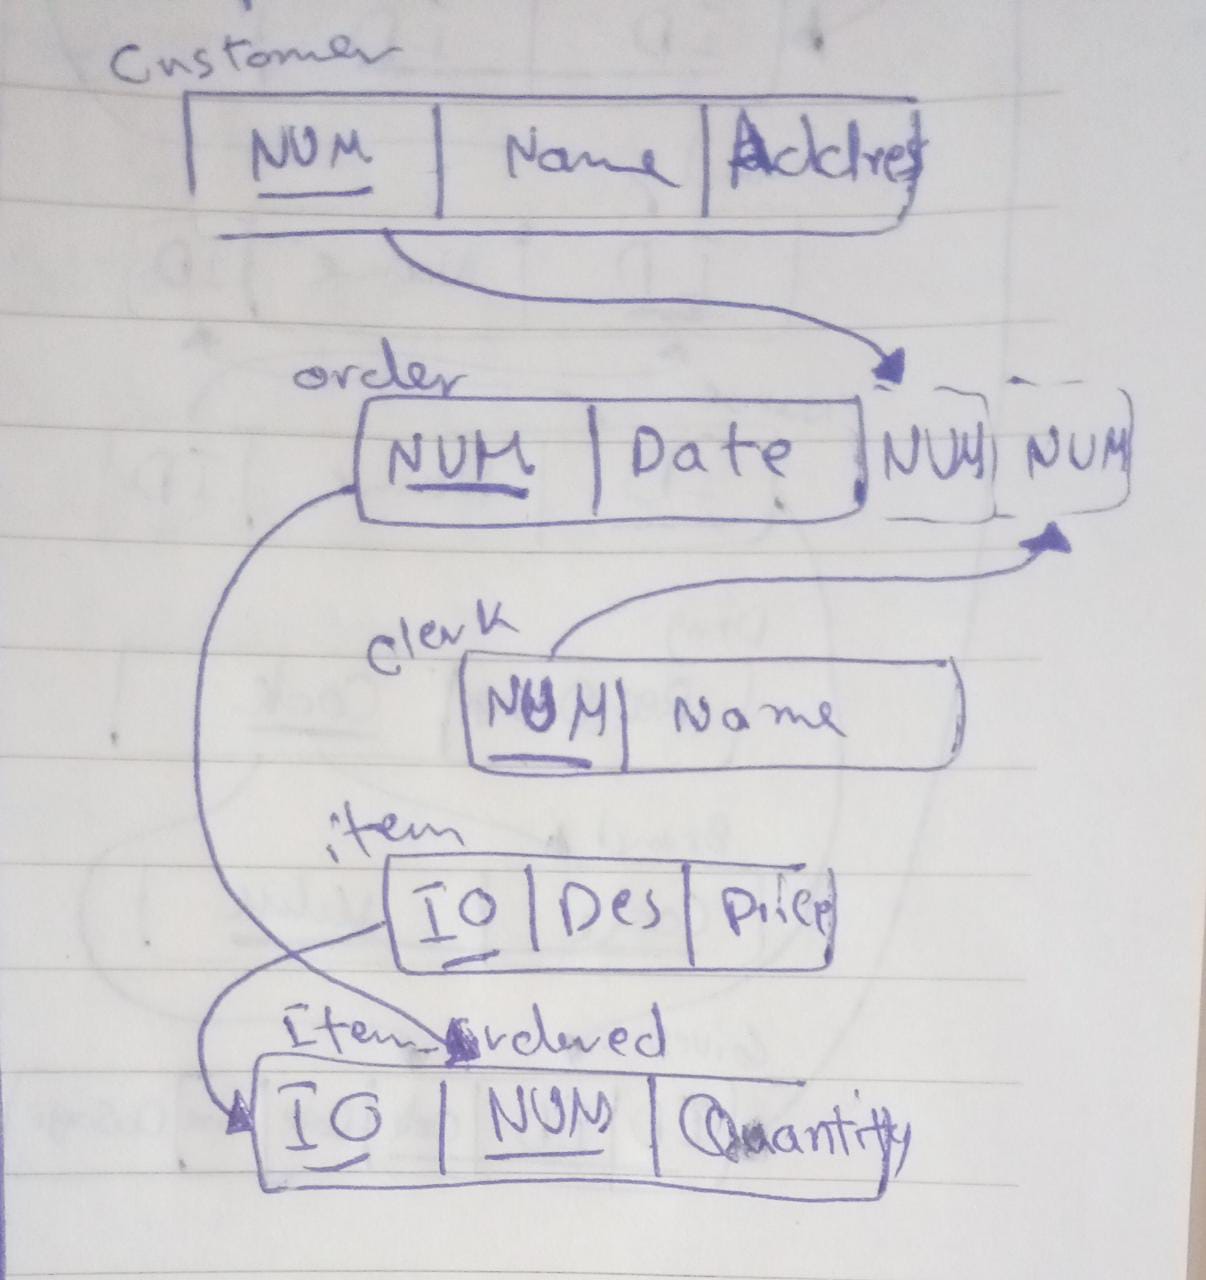 Customer
NUM Name Addres
order
NUM Date NUM NUM
clerk
NUM Name
item
ID Des Price
Item_ordered
ID NUM Quantity